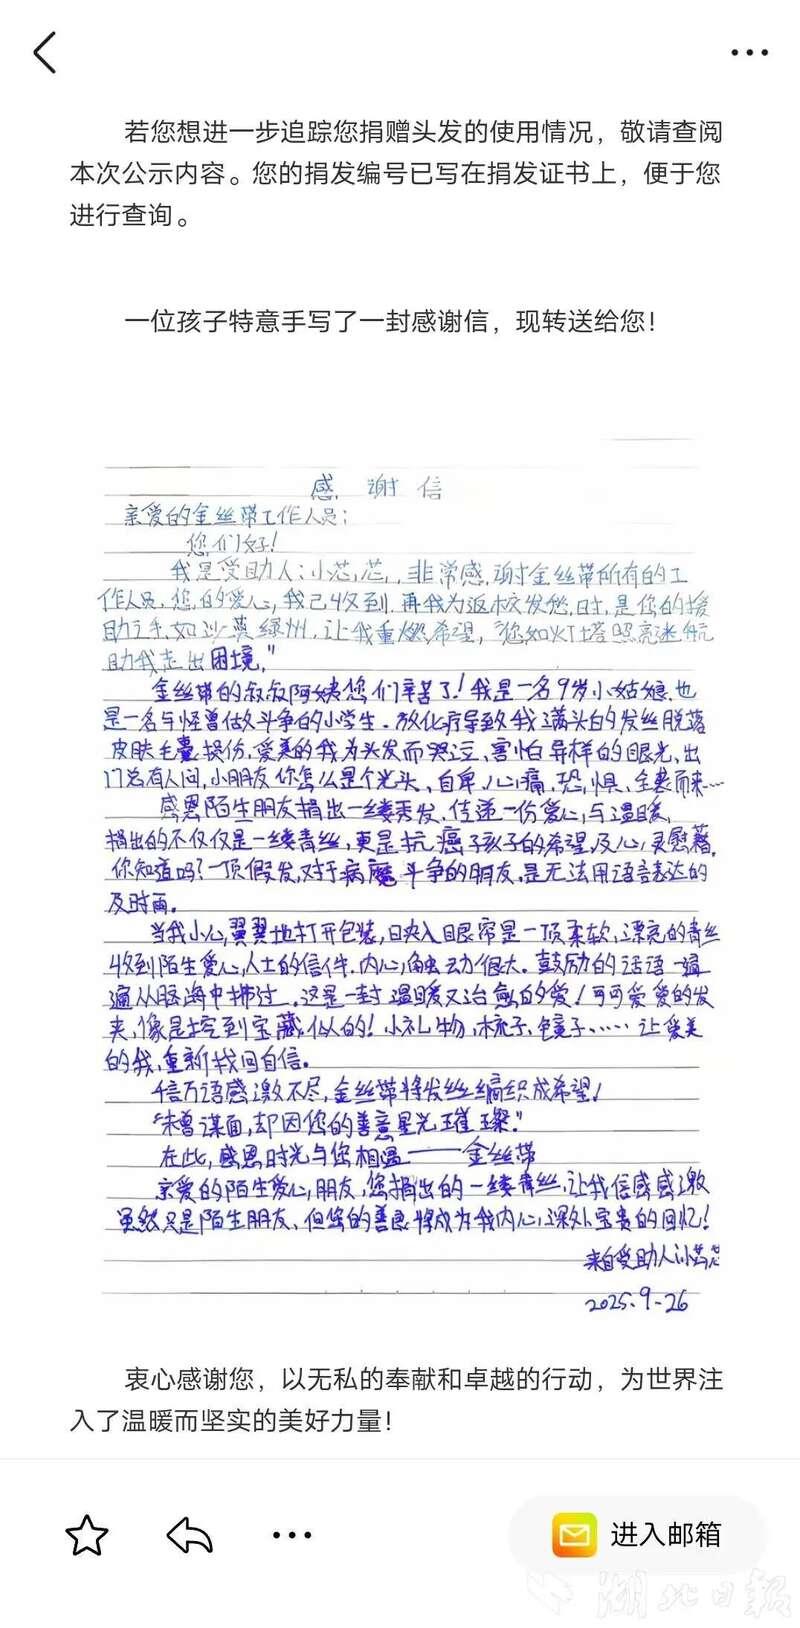 若您想进一步追踪您捐赠头发的使用情况，敬请查阅
本次公示内容。您的捐发编号已写在捐发证书上，便于您
进行查询。
一位孩子特意手写了一封感谢信，现转送给您！
感谢信
亲爱的金丝带工作人员：
您们好！
我是受助人：小芯芯，非常感谢金丝带所有的工
作人员，您的爱心，我已收到，再我为返校发愁时，是您的援
助之手，如沙漠绿洲，让我重燃希望，“您如灯塔照亮迷航
助我走出困境，”
金丝带的叔叔阿姨您们辛苦了！我是一名9岁小姑娘，也
是一名与怪兽做斗争的小学生。放化疗导致我满头的发丝脱落
皮肤毛囊损伤，爱美的我为头发而哭泣、害怕异样的眼光，出
门总有人问，小朋友你怎么是个光头，自卑，心痛，恐，惧，全袭而来…
感恩陌生朋友捐出一缕秀发，传递一份爱心与温暖，
捐出的不仅仅是一缕青丝，更是抗癌孩子的希望及心灵慰藉。
你知道吗？一顶假发，对于病魔斗争的朋友，是无法用语言表达的
及时雨。
当我小心翼翼地打开包装，映入眼帘是一顶柔软，漂亮的青丝
收到陌生爱心人士的信件，内心触动很大。鼓励的话语一遍
遍从脑海中拂过，这是一封温暖又治愈的爱！可可爱爱的发
夹，像是挖到宝藏似的！小礼物，梳子、镜子……让爱美
的我，重新找回自信。
千言万语感激不尽，金丝带将发丝编织成希望！
“未曾谋面，却因您的善意星光璀璨。”
在此，感恩时光与您相遇——金丝带
亲爱的陌生爱心朋友，您捐出的一缕青丝，让我倍感感激
虽然只是陌生朋友，但您的善良将成为我内心深处宝贵的回忆！
来自受助人小芯芯
2025.9-26
衷心感谢您，以无私的奉献和卓越的行动，为世界注
入了温暖而坚实的美好力量！
进入邮箱
湖北日报